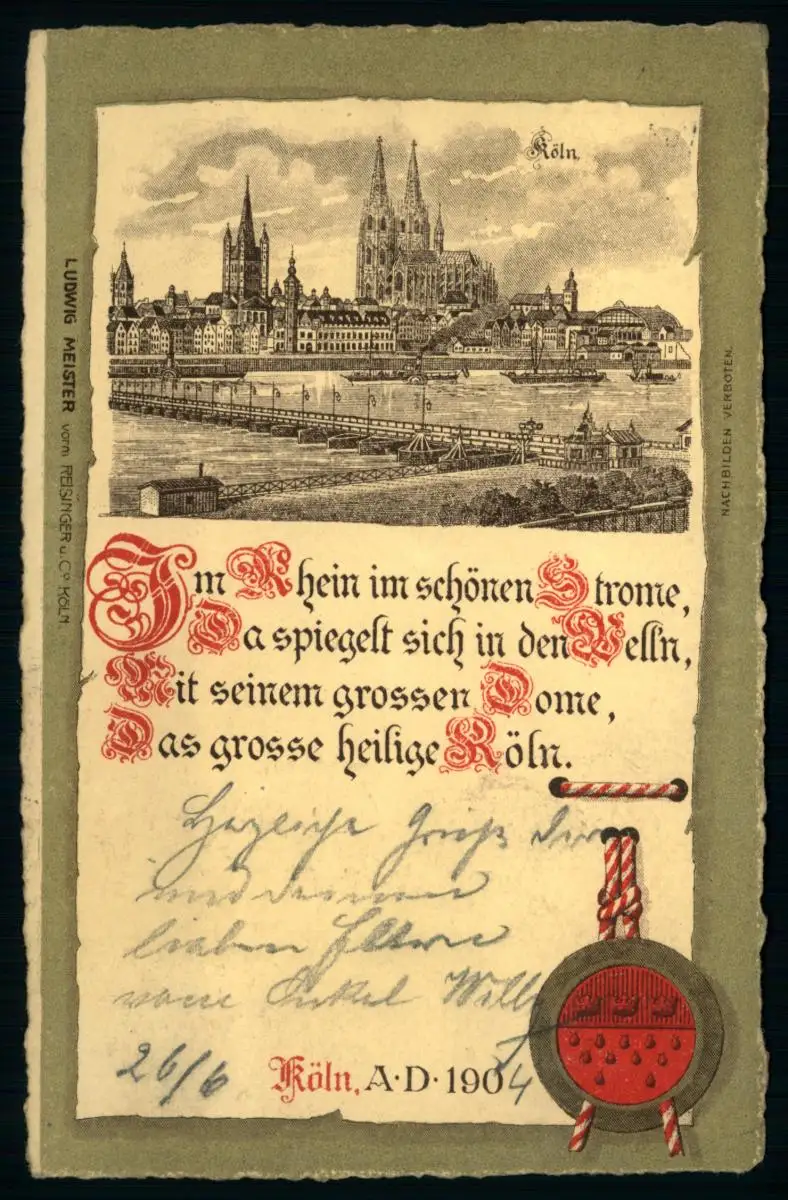 Köln.
Im Rhein im schönen Strome,
Da spiegelt sich in den Welln,
Mit seinem grossen Dome,
Das grosse heilige Köln.
Herzliche Grüße Dir
und deinen
lieben Eltern
vom Onkel Willy
26/6
Köln, A·D·1904
LUDWIG MEISTER vorm REISINGER u. Co KÖLN.
NACHBILDEN VERBOTEN.